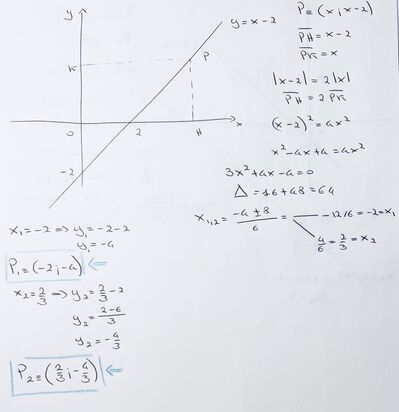 y
y = x - 2
K
P
O
2
H
x
-2
P ≡ (x ; x - 2)
PH = x - 2
PK = x
|x - 2| = 2|x|
PH = 2 PK
(x - 2)² = 4x²
x² - 4x + 4 = 4x²
3x² + 4x - 4 = 0
Δ = 16 + 48 = 64
x₁,₂ = (-4 ± 8)/6 = -12/6 = -2 = x₁
4/6 = 2/3 = x₂
x₁ = -2 => y₁ = -2 - 2
y₁ = -4
P₁ ≡ (-2 ; -4) ⇐
x₂ = 2/3 => y₂ = 2/3 - 2
y₂ = (2 - 6)/3
y₂ = -4/3
P₂ ≡ (2/3 ; -4/3) ⇐